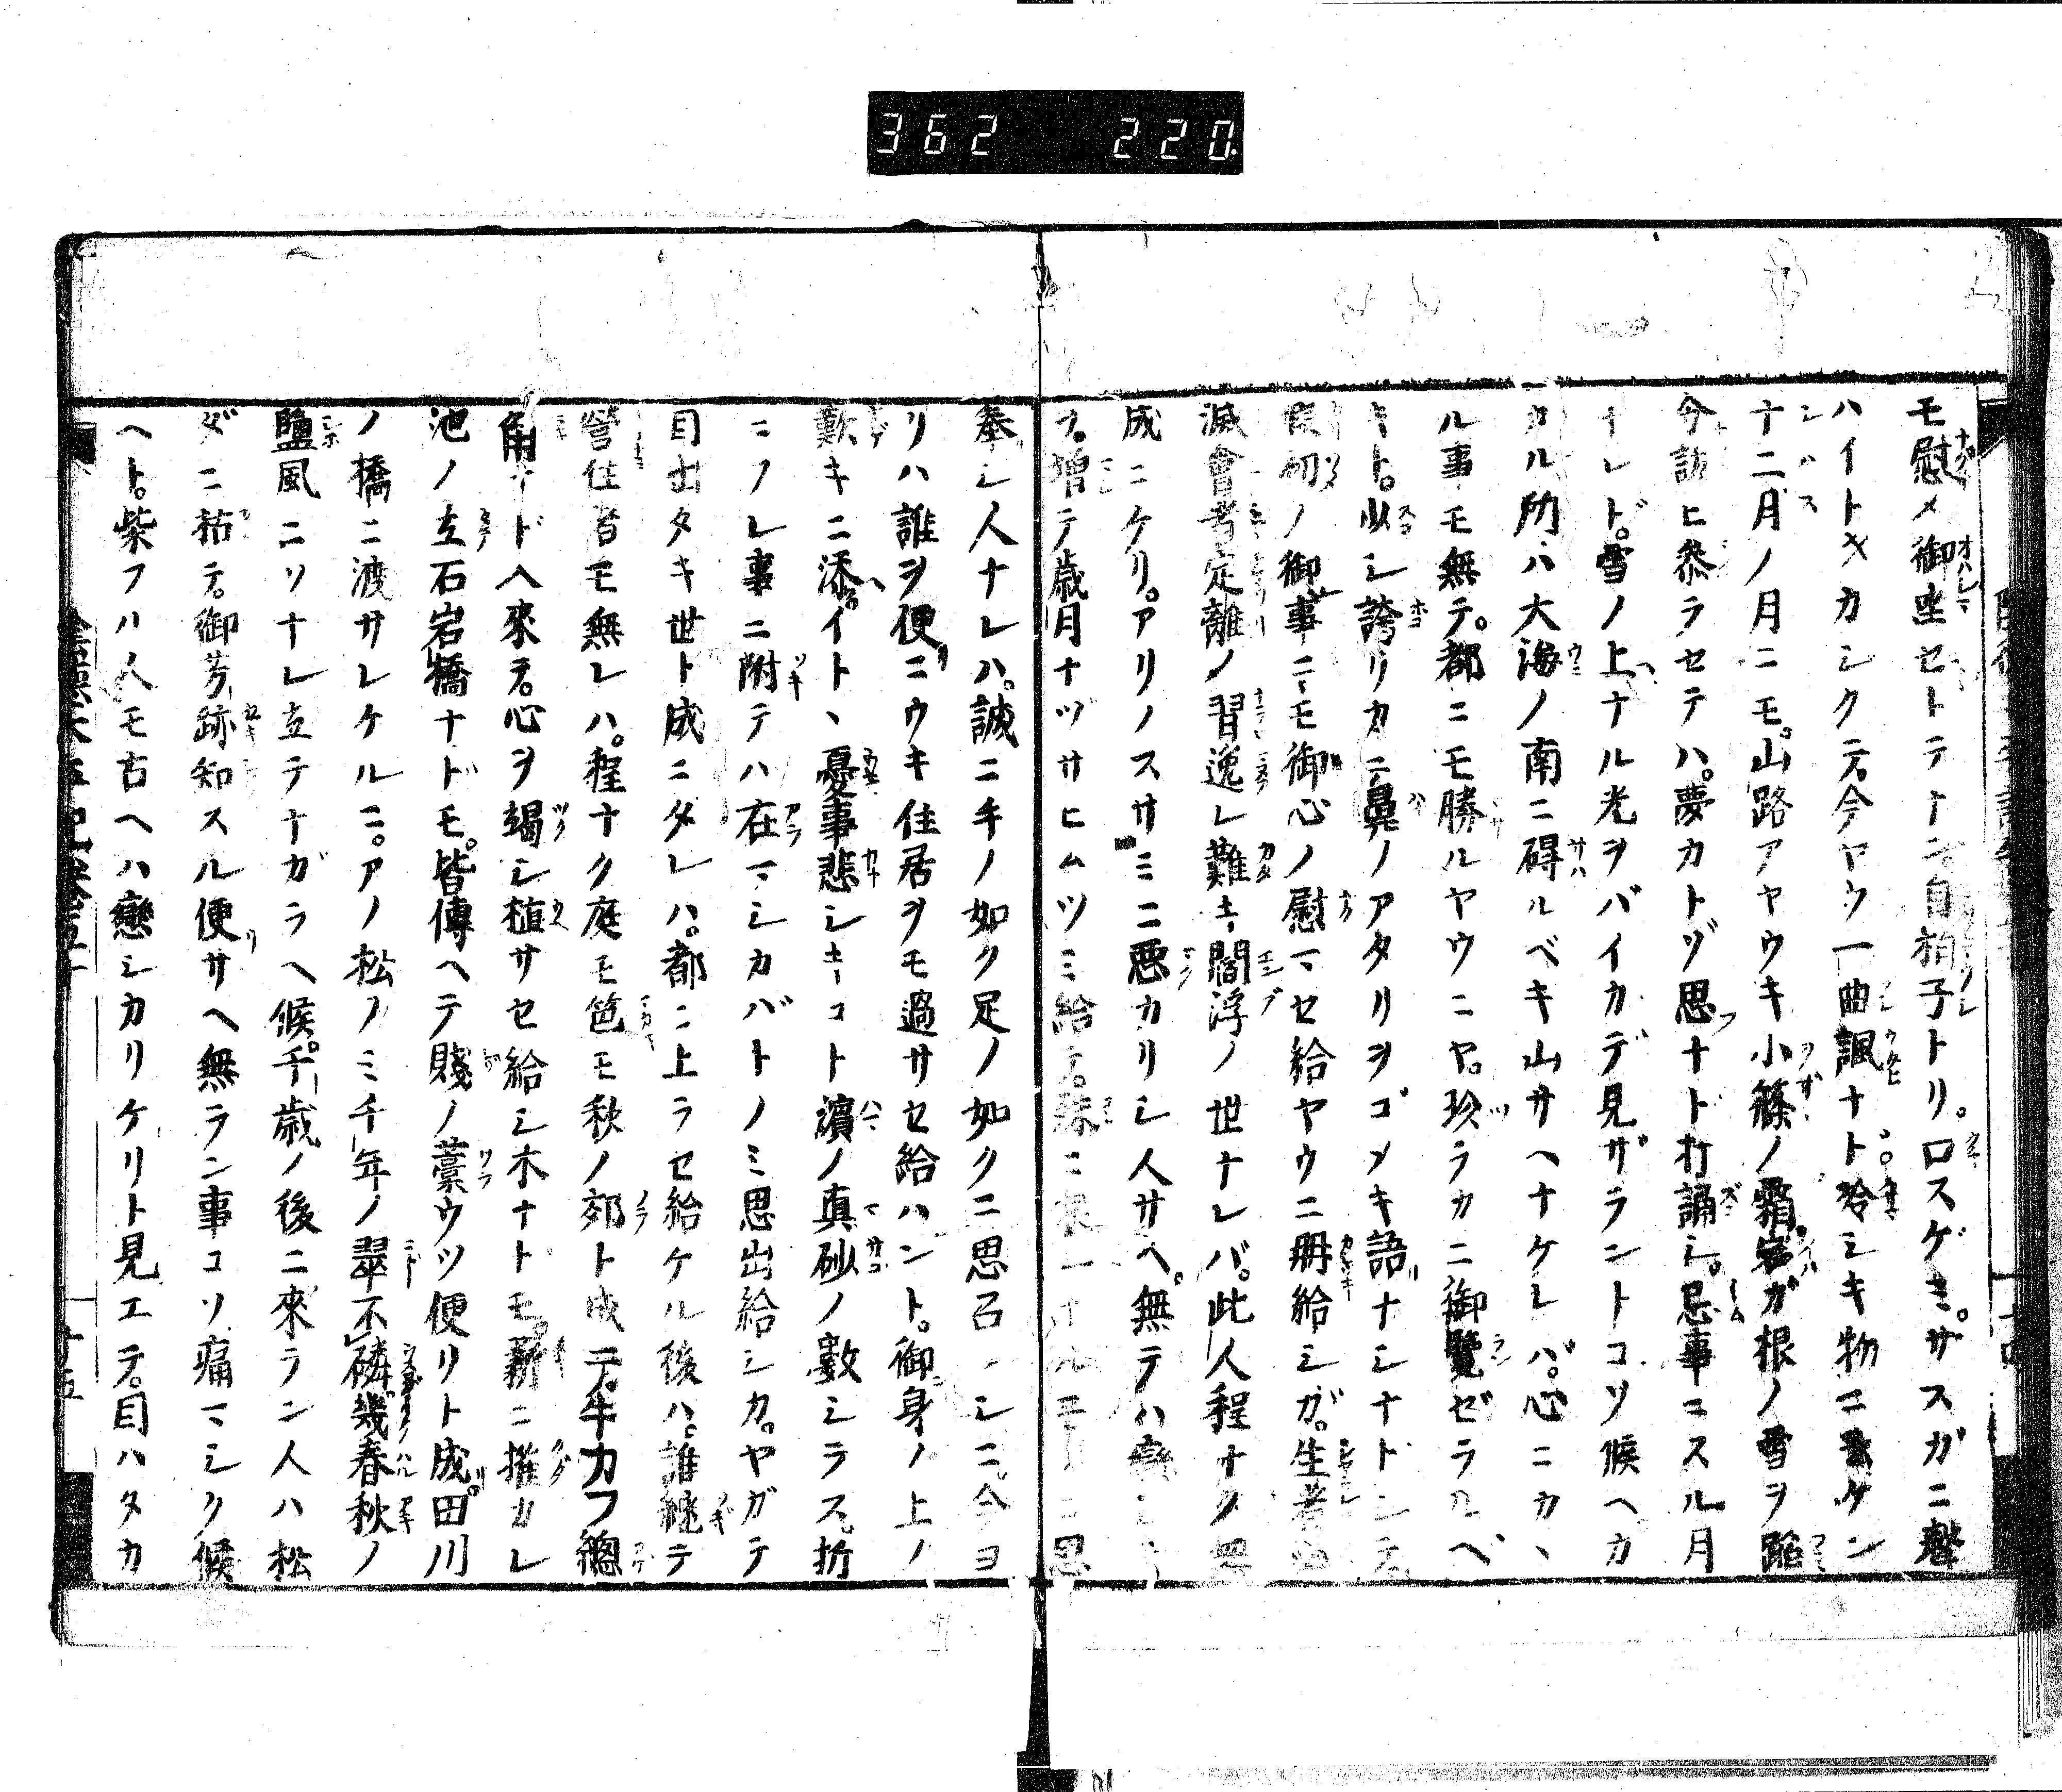 362 220
モ慰メ御坐セトテナン自拍子トリ。口スゲミ。サスガニ聲
ハイトヾカシクテ今ヤウ一曲諷ナト冷シキ物ニケン
十二月ノ月ニモ。山路アヤウキ小篠ノ霜。岩ガ根ノ雪ヲ蹈
今訪ヒ参ラセテハ。夢カトゾ思ナド打誦シ。忌事ニスル月
ナレド。雪ノ上ナル光ヲバイカデ見ザラントコソ候ヘカ
カル所ハ大海ノ南ニ碍ルベキ山サヘナケレバ。心ニカヽ
ル事モ無テ。都ニモ勝ルヤウニヤ。玖ラカニ御覽ゼラルベ
キト。少シ誇リカニ鼻ノアタリヲゴメキ語ナシナトシテ。
切ノ御事ニモ御心ノ慰マセ給ヤウニ冊給シガ。生者必
滅會者定離ノ習逸レ難キ閻浮ノ世ナレバ。此人程ナク
成ニケリ。アリノスサミニ悪カリシ人サヘ。無テハ
フ。増テ歳月ナヅサヒムツミ給テ。殊ニ思
奉シ人ナレハ。誠ニ手ノ如ク足ノ如クニ思召シニ今ヨ
リハ誰ヲ便ニウキ住居ヲモ過サセ給ハント。御身ノ上ノ
歎キニ添。イトヽ憂事悲シキコト濵ノ真砂ノ數シラス。折
ニフレ事ニ附テハ在マシカバトノミ思出給シカ。ヤガテ
目出タキ世ト成ニダレハ。都ニ上ラセ給ケル後ハ。誰継テ
營住者モ無レハ。程ナク庭モ笆モ秋ノ郊ト成テ。牛カフ總
角ナドへ來テ。心ヲ竭シ植サセ給シ木ナトモ。薪ニ摧カレ
池ノ立石岩橋ナドモ。皆傳ヘテ賤ノ藁ウツ便リト成。田川
ノ橋ニ渡サレケルニ。アノ松ノミ千年ノ翠不憐幾春秋ノ
鹽風ニソナレ立テナガラヘ候。千歳ノ後ニ來ラン人ハ松
ダニ枯テ。御芳跡知スル便サヘ無ラン事コソ痛マシク候
ヘト。柴フハ人モ古ヘハ戀シカリケリト見エテ。目ハタカ